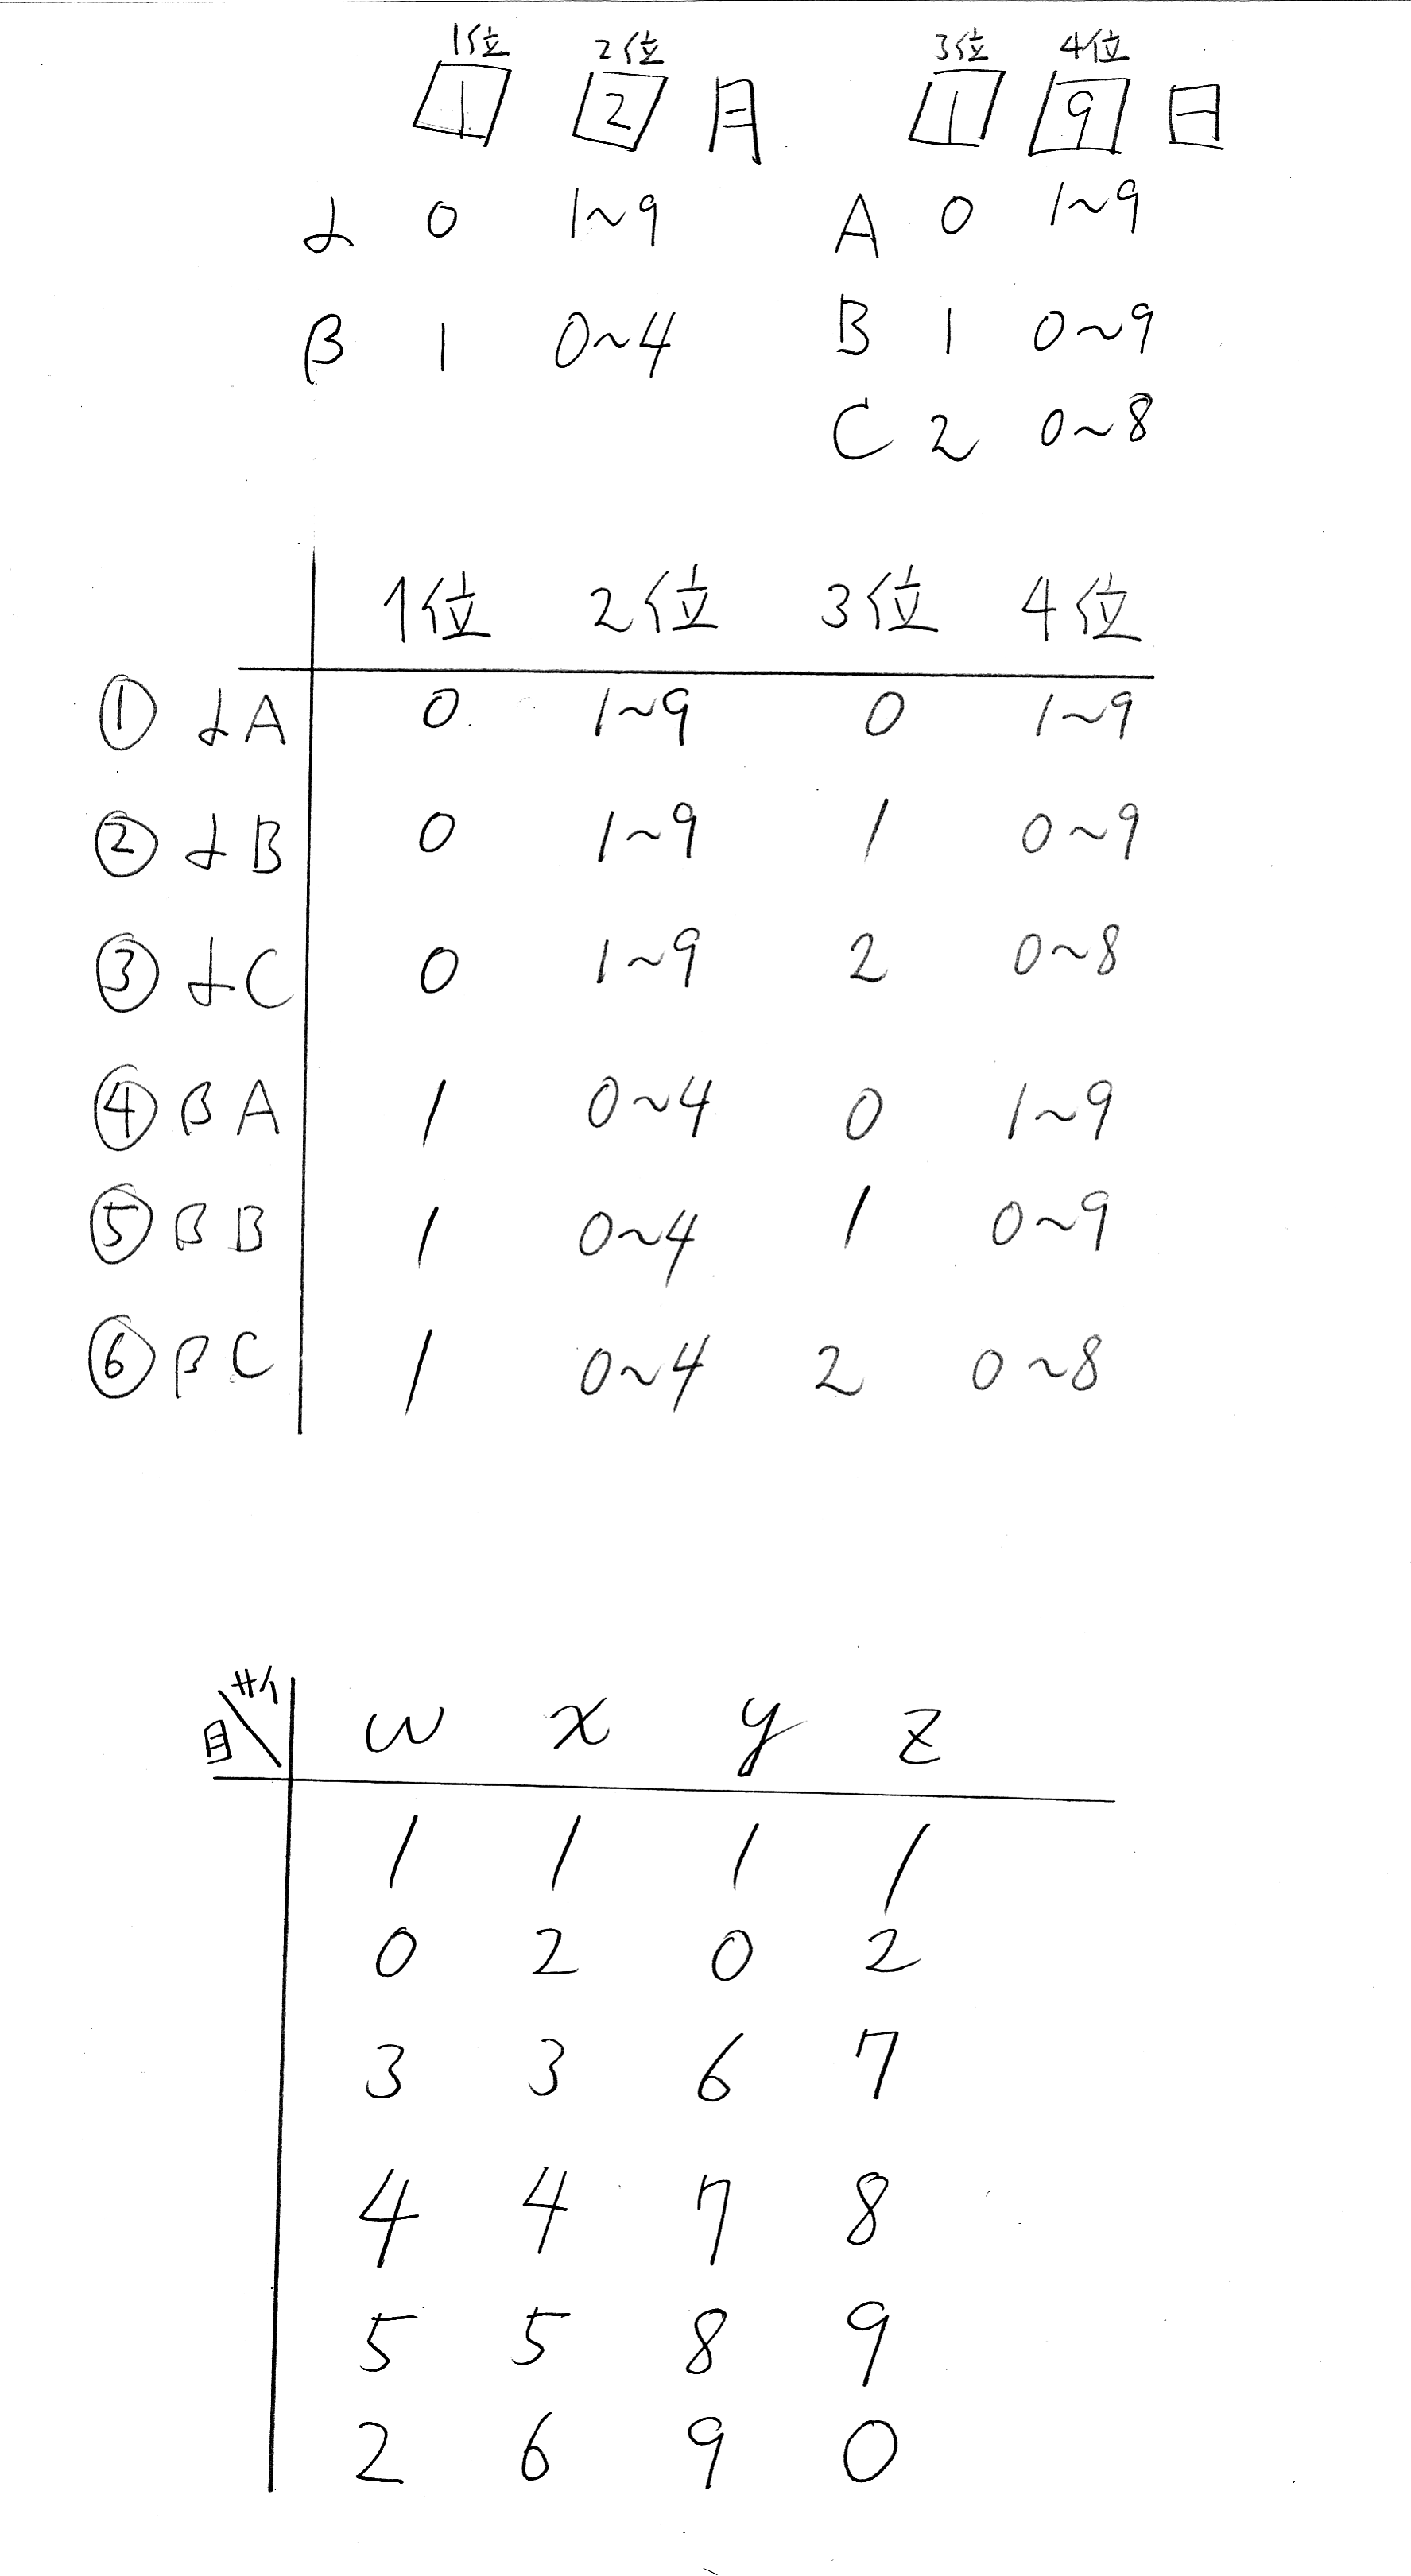 1位 2位 3位 4位
1 2 月 1 9 日
α 0 1~9 A 0 1~9
β 1 0~4 B 1 0~9
C 2 0~8
1位 2位 3位 4位
① αA 0 1~9 0 1~9
② αB 0 1~9 1 0~9
③ αC 0 1~9 2 0~8
④ βA 1 0~4 0 1~9
⑤ βB 1 0~4 1 0~9
⑥ βC 1 0~4 2 0~8
目 w x y z
1 1 1 1
0 2 0 2
3 3 6 7
4 4 7 8
5 5 8 9
2 6 9 0